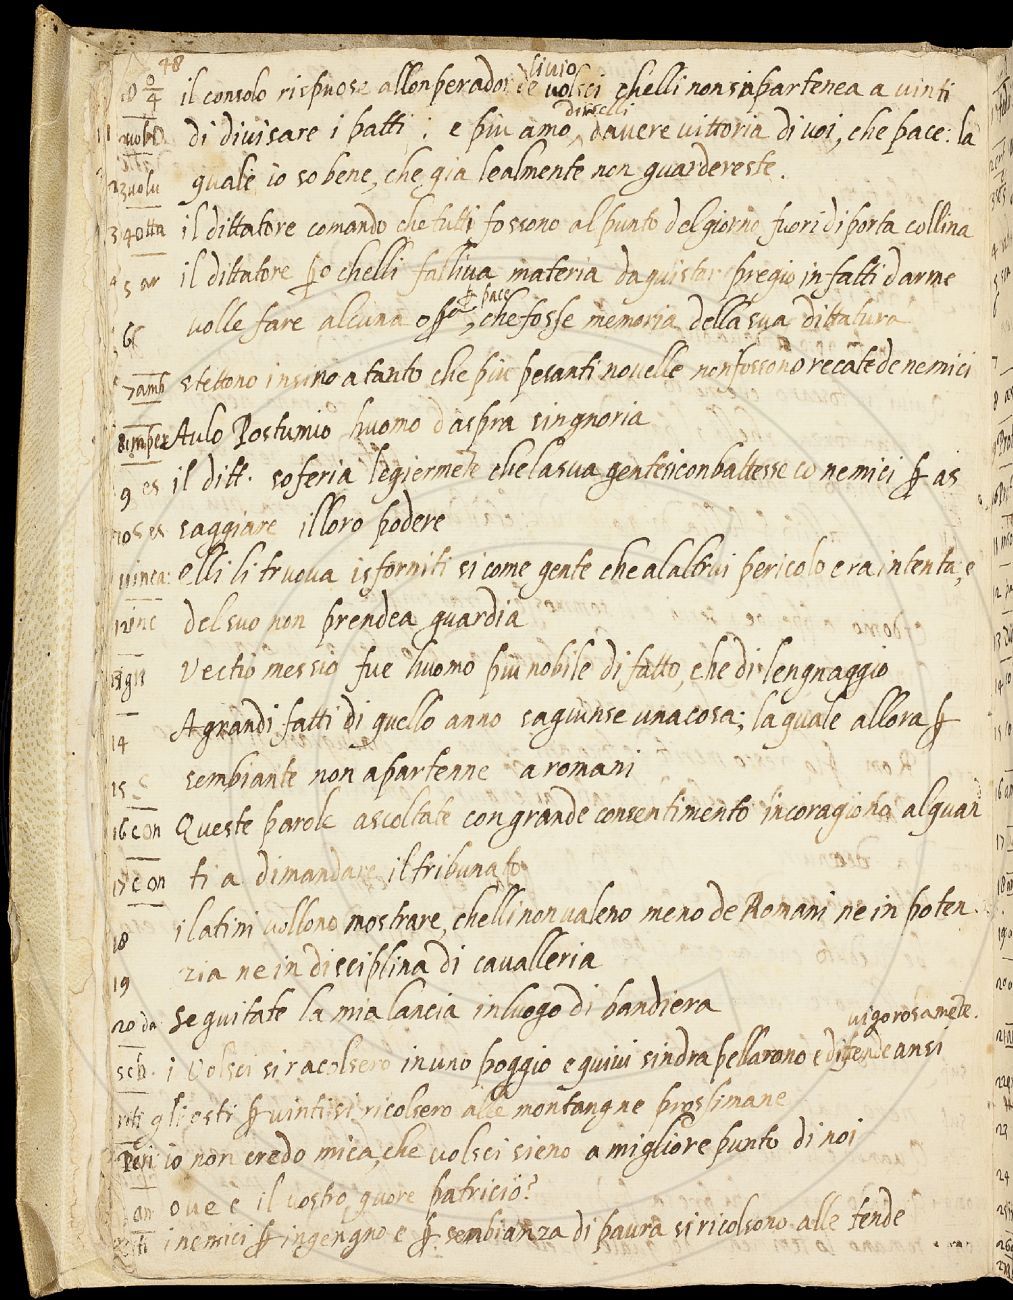 48
livio
il consolo rispuose allonperador de volsci chelli non sipartenea a vinti
disselli
di divisare i patti : e piu amo, davere vittoria di voi, che pace: la
quale io so bene, che gia lealmente non guardereste.
il dittatore comando che tutti fossono al punto del giorno fuori di porta collina
il dittatore ꝑo chelli falliva materia daquistar pregio in fatti darme
ꝑ pace
volle fare alcuna , che fosse memoria della sua dittatura
stettono insino atanto che piu pesanti novelle non fossono recate de nemici
Aulo Postumio huomo daspra singnoria
il ditt. soferia legiermete che la sua gente si conbattesse co nemici ꝑ as
saggiare il loro podere
elli li truova isforniti si come gente che alaltrui pericolo era intenta, e
del suo non prendea guardia
Vectio messio fue huomo piu nobile di fatto, che di lengnaggio
A grandi fatti di quello anno sagiunse una cosa; la quale allora ꝑ
sembiante non apartenne a romani
Queste parole ascoltate con grande consentimento incoragiono alquan
ti a dimandare il tribunato
i latini vollono mostrare, chelli non valeno meno de Romani ne in poten
zia ne in disciplina di cavalleria
Seguitate la mia lancia in luogo di bandiera
vigorosamete.
i Volsci si racolsero in uno poggio e quivi sindrapellarono e difendeansi
gli osti ꝑ vinti si ricolsero alle montangne prossimane
io non credo mica, che volsci sieno a migliore punto di noi
ove e il vostro quore patricio?
i nemici ꝑ ingengno e ꝑ sembianza di paura si ricolsono alle tende